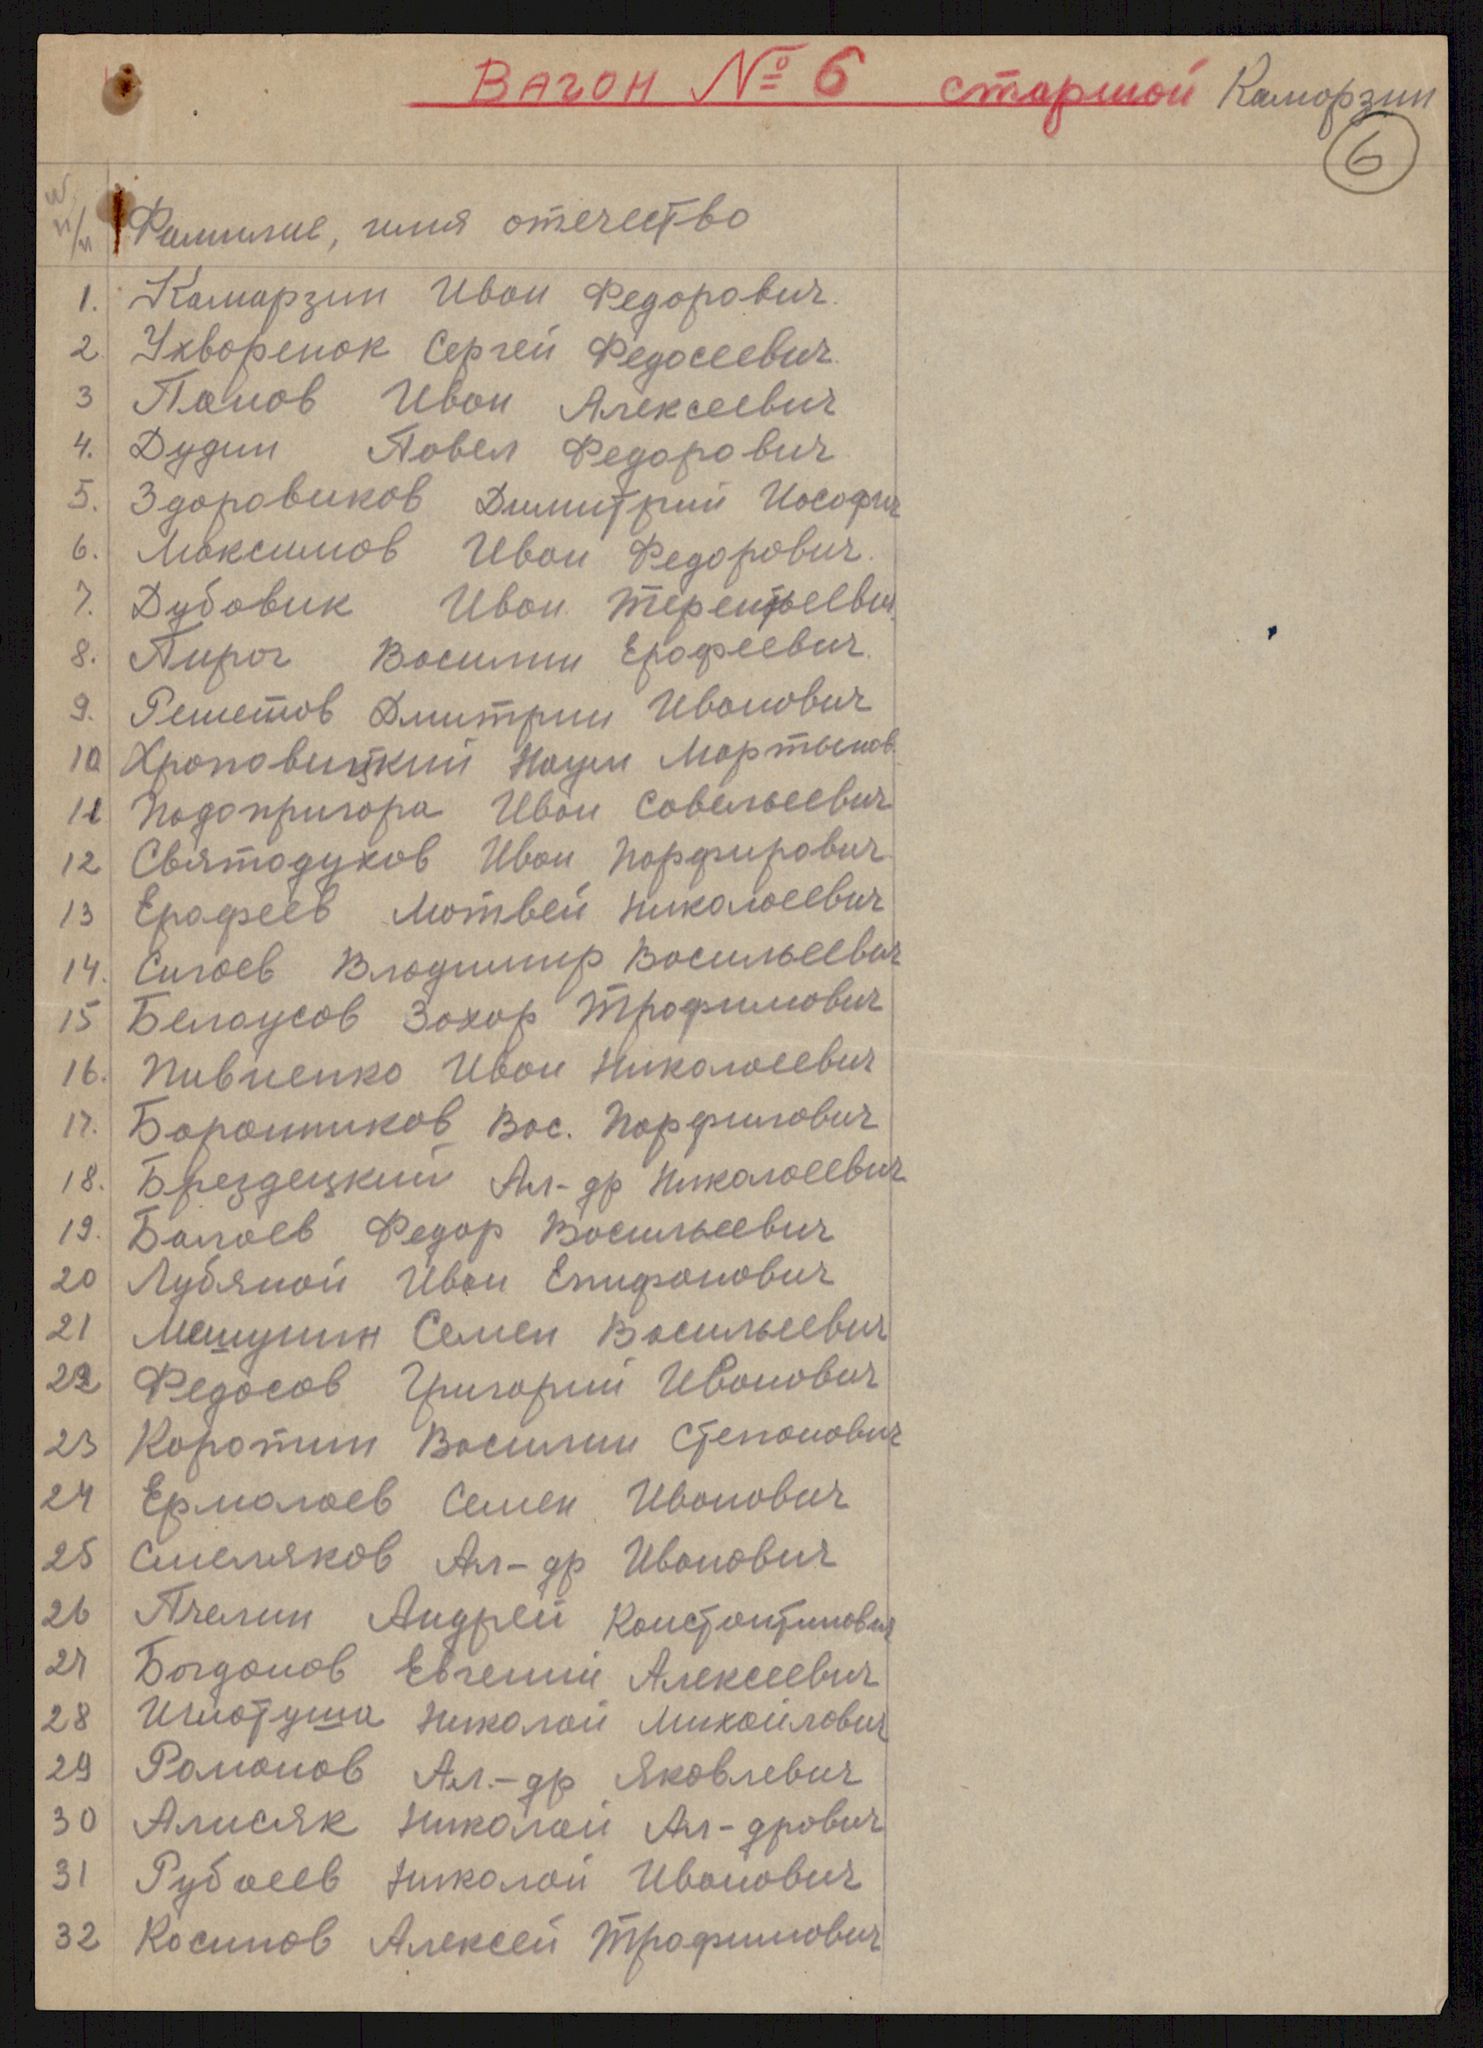 Вагон № 6 старшой Каморзин
6
№ п/п Фамилие, имя отечество
1. Камарзин Иван Федорович.
2 Ухваренок Сергей Федосеевич.
3 Панов Иван Алексеевич
4. Дудин Павел Федорович
5. Здоровиков Димитрий Иософич
6. Максимов Иван Федорович.
7. Дубовик Иван Терентьевич.
8. Пирог Василии Ерофеевич.
9. Решетов Дмитрии Иванович
10 Хроповицкий Наум Мартынов.
11 Подопригора Иван Савельеевич
12 Святодухов Иван Порфирович
13 Ерофеев Матвей Николаеевич
14. Сигаев Владимир Васильеевич
15 Белоусов Захар Трофимович
16. Пивненко Иван Николаеевич
17. Баранников Вас. Порфилович
18. Брездецкий Ал-др Николаеевич
19. Балаев Федор Васильеевич
20 Лубяной Иван Епифанович
21 Мешунин Семен Васильеевич
22 Федосов Григорий Иванович
23 Коротин Василии Степанович
24 Ермалаев Семен Иванович
25 Смеляков Ал-др Иванович
26 Пчелин Андрей Константинович
27 Богданов Евгений Алексеевич
28 Игнатуша Николай Михайлович
29 Романов Ал.-др Яковлевич
30 Алисяк Николай Ал-дрович
31 Рубаеев Николай Иванович
32 Косинов Алексей Трофимович